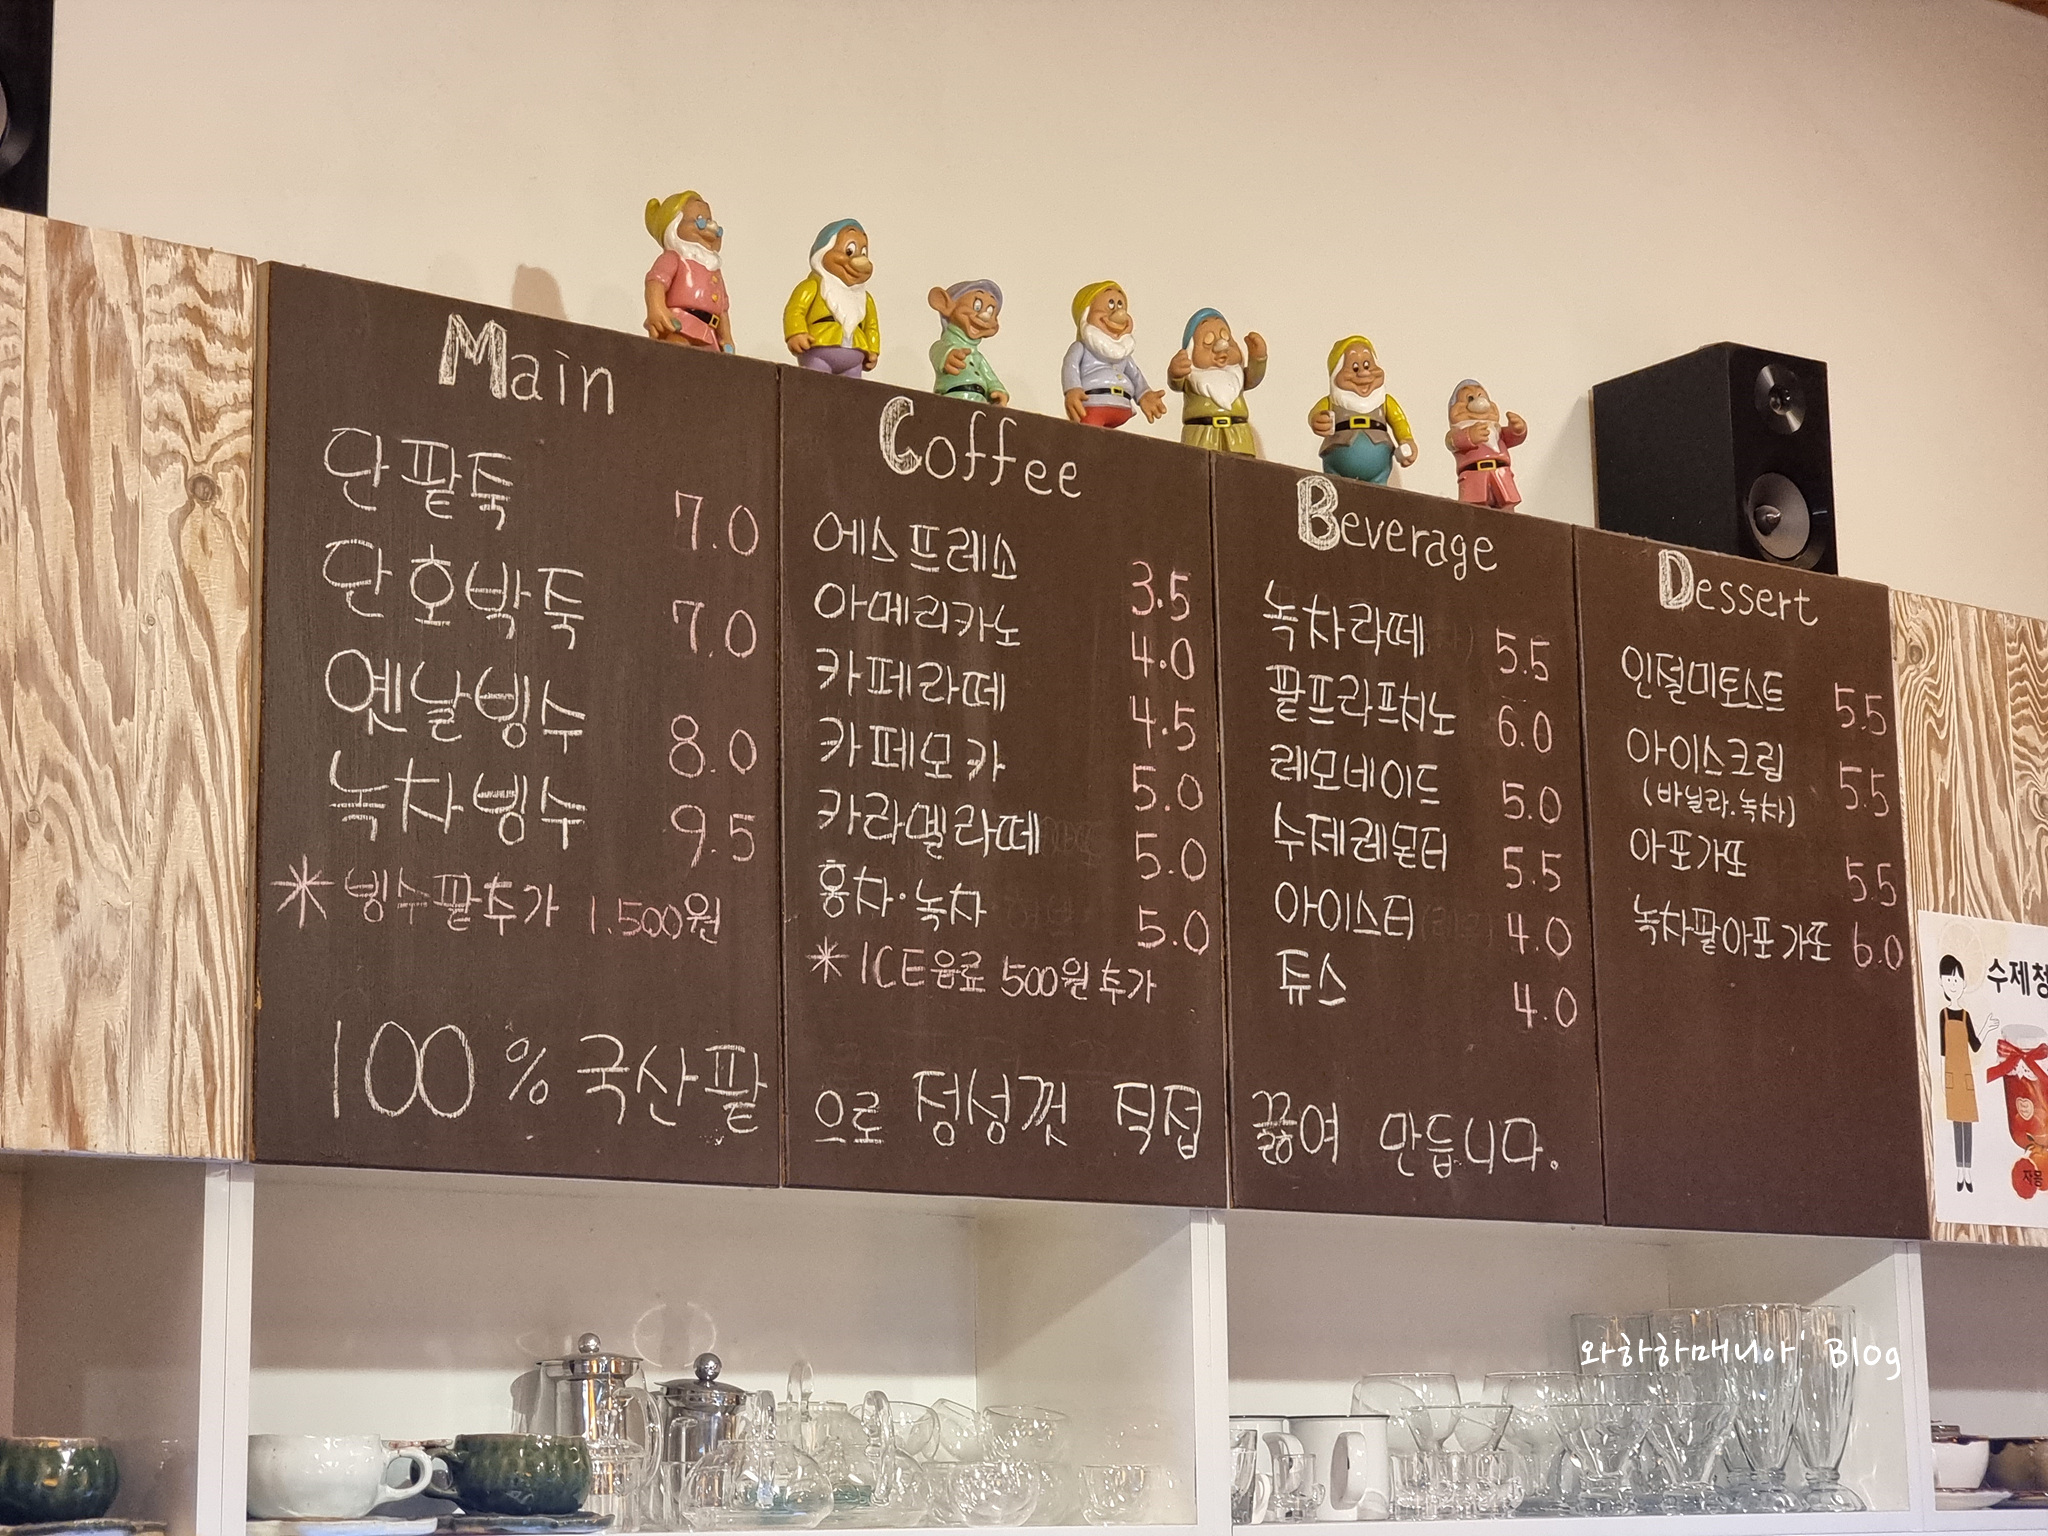 Main
단팥죽 7.0
단호박죽 7.0
옛날빙수 8.0
녹차빙수 9.5
* 빙수팥추가 1.500원
Coffee
에스프레소 3.5
아메리카노 4.0
카페라떼 4.5
카페모카 5.0
카라멜라떼 5.0
홍차·녹차 5.0
* ICE음료 500원 추가
Beverage
녹차라떼 5.5
팥프라프치노 6.0
레모네이드 5.0
수제레몬티 5.5
아이스티 4.0
쥬스 4.0
Dessert
인절미토스트 5.5
아이스크림 5.5
(바닐라.녹차)
아포가또 5.5
녹차팥아포가또 6.0
100% 국산팥으로 정성껏 직접 끓여 만듭니다.
수제청
자몽
와하하매니아' Blog